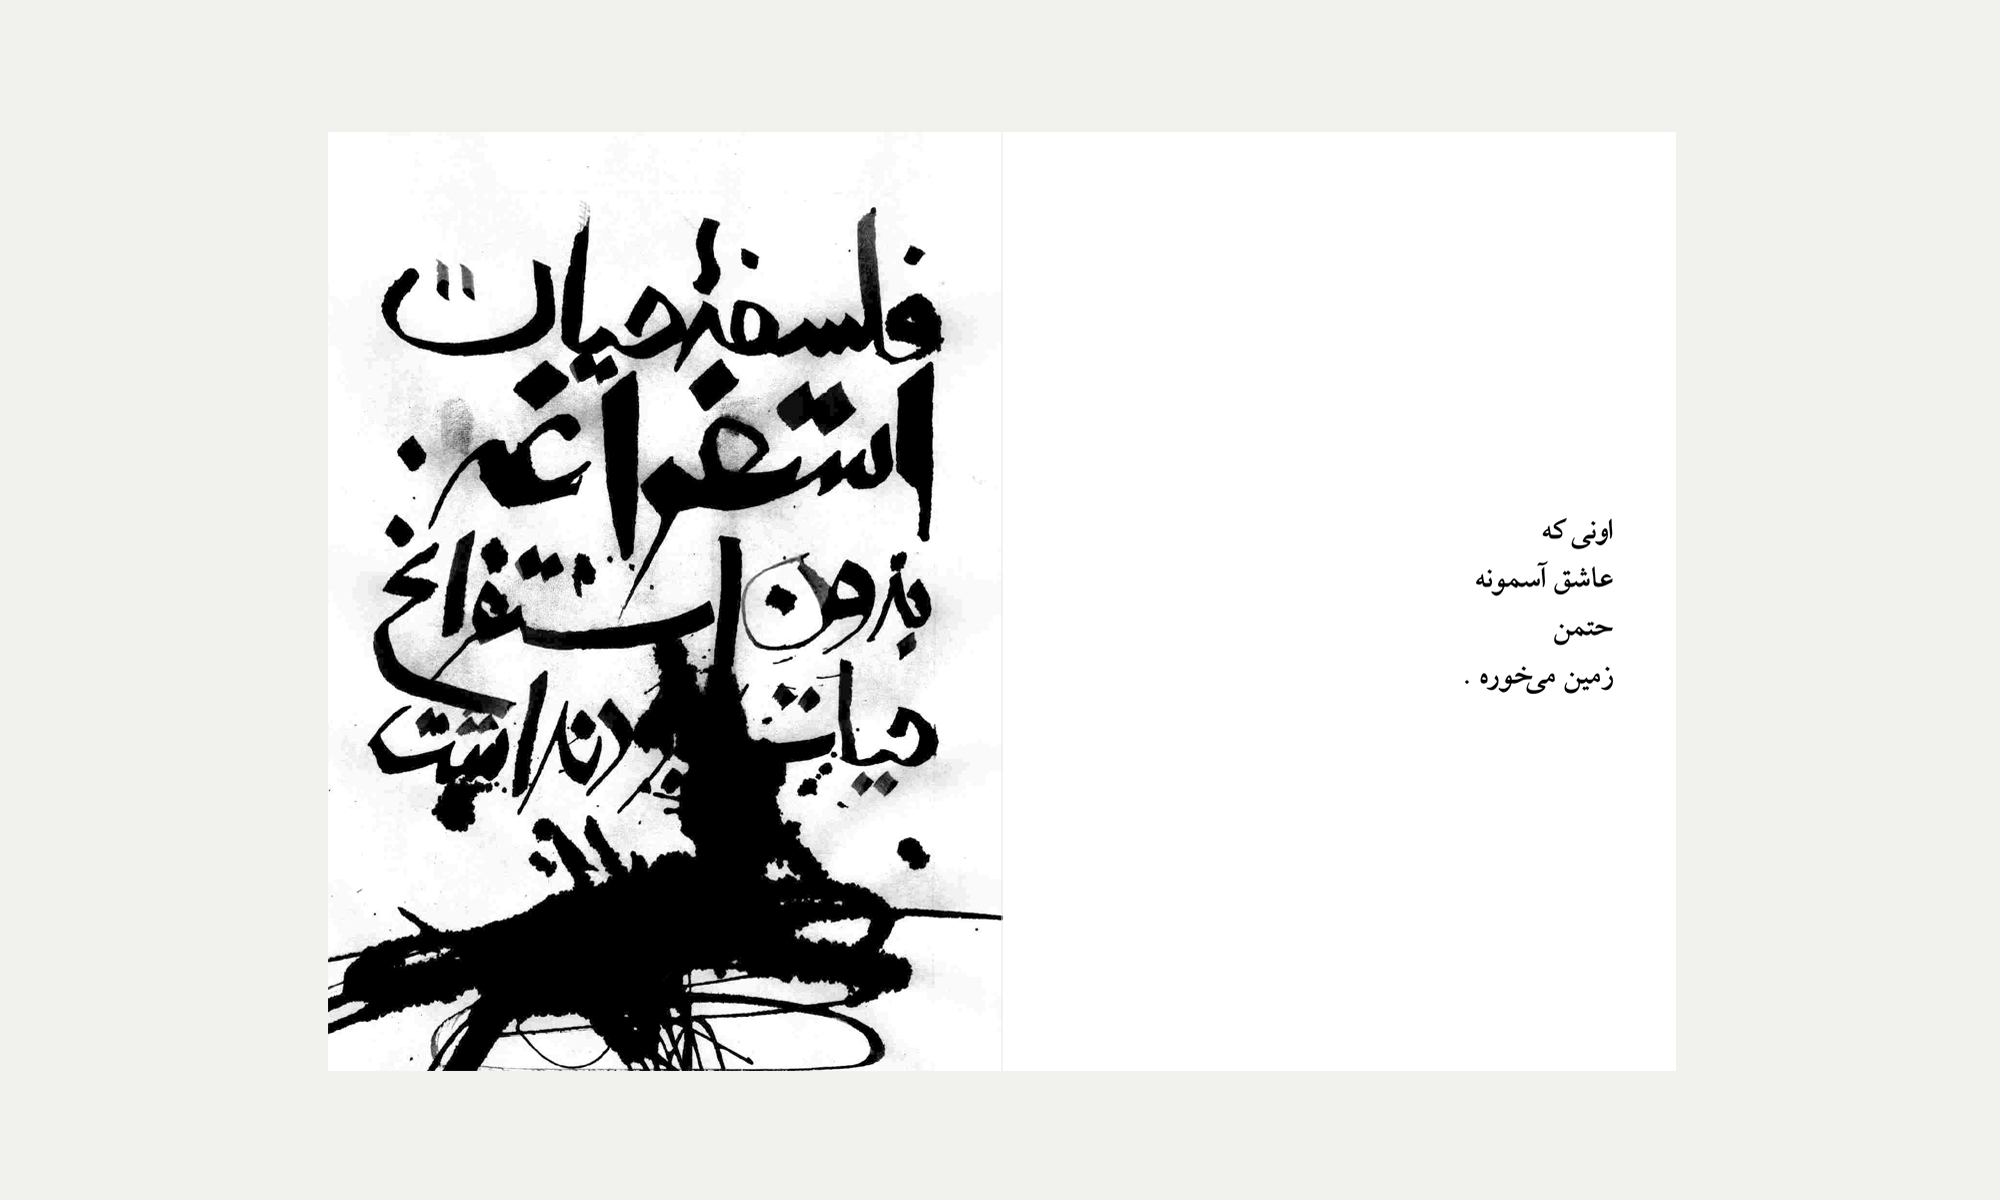 اونی که
عاشق آسمونه
حتمن
زمین می‌خوره .
فلسفهٔ حیات
استفراغه.
استفراغ
حیات